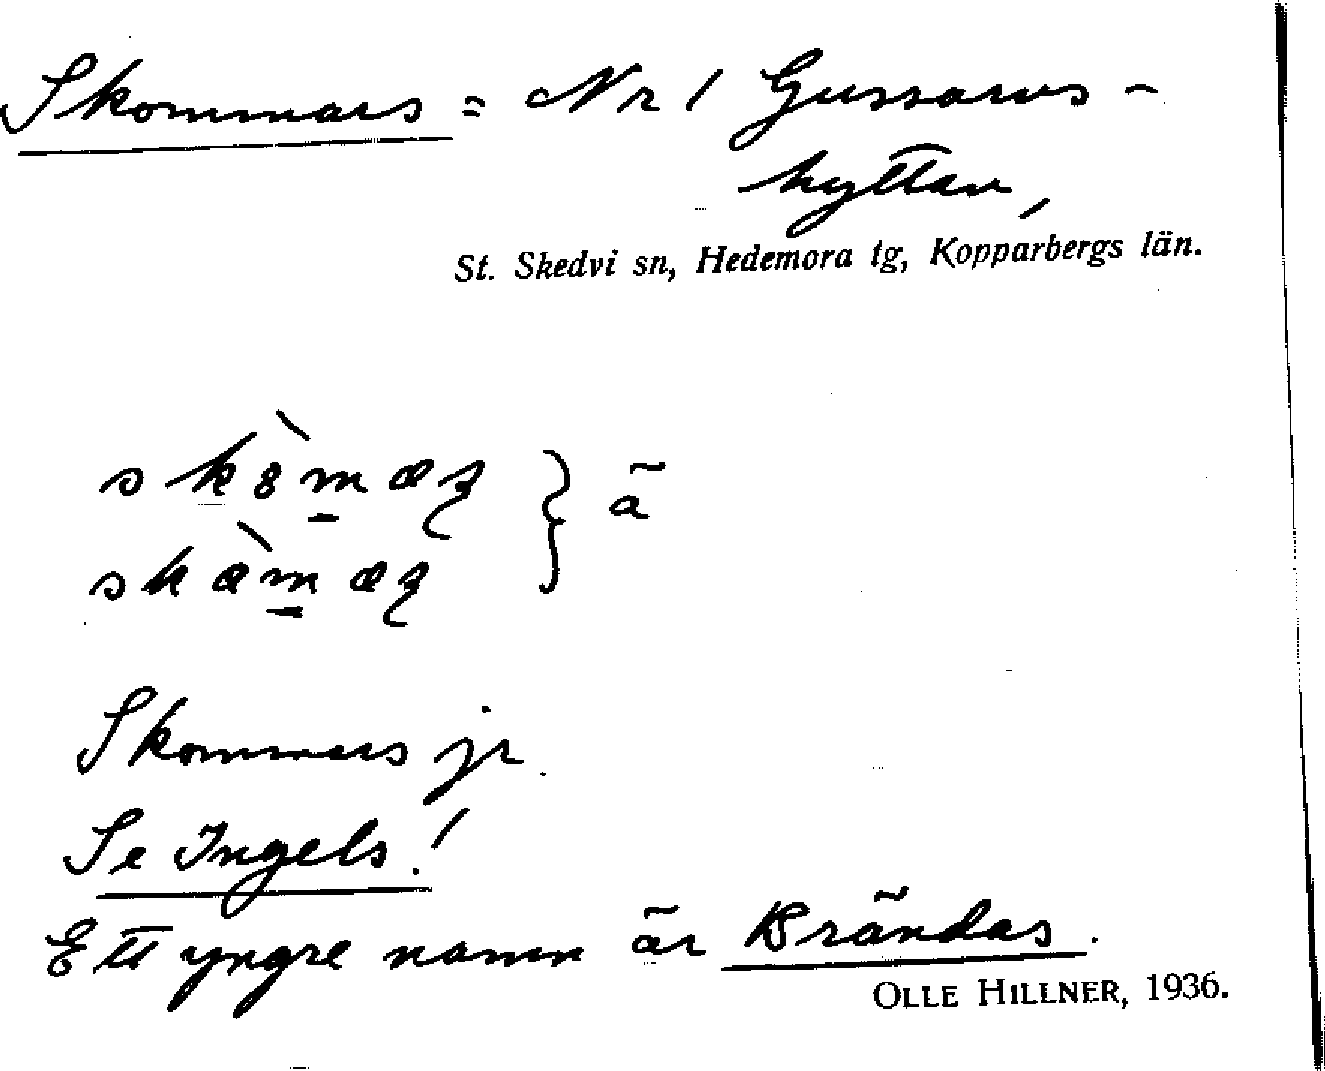 Skommars = Nr 1 Gussarvs-
hyttan,
St. Skedvi sn, Hedemora tg, Kopparbergs län.
ä
Skommars jr.
Se Ingels!
Ett yngre namn är Brändas.
OLLE HILLNER, 1936.